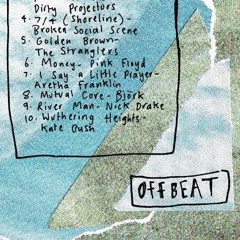 Dirty Projectors
4. 7/4 (Shoreline)-
Broken Social Scene
5. Golden Brown-
The Stranglers
6. Money- Pink Floyd
7. I Say a Little Prayer-
Aretha Franklin
8. Mutual Core- Björk
9. River Man- Nick Drake
10. Wuthering Heights-
Kate Bush
OFFBEAT